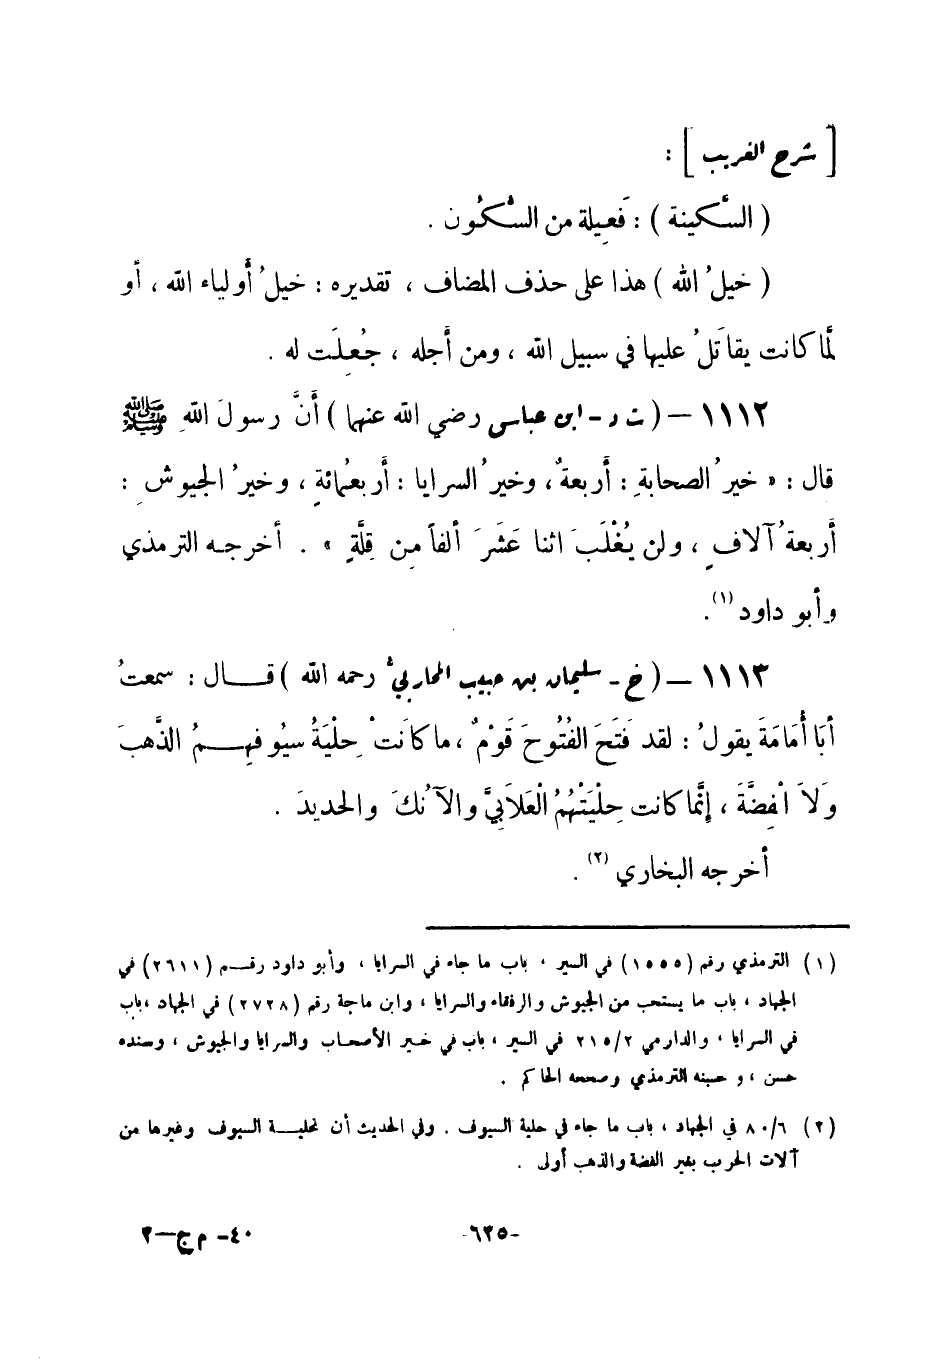 [ شرح الغريب ] :
( السَّكينة ) : فَعِيلة من السُّكُون .
( خيلُ الله ) هذا على حذف المضاف ، تقديره : خيلُ أولياء الله ، أو
لمَّا كانت يقاتَلُ عليها في سبيل الله ، ومن أجله ، جُعِلَت له .
١١١٢ — ( ت د - ابن عباس رضي الله عنهما ) أنَّ رسولَ اللهِ ﷺ
قال : « خيرُ الصحابةِ : أربعةٌ ، وخيرُ السرايا : أربعُمائةٍ ، وخيرُ الجيوشِ :
أربعةُ آلافٍ ، ولن يُغْلَبَ اثنا عَشَرَ ألفاً مِن قِلَّةٍ » . أخرجه الترمذي
وأبو داود (١).
١١١٣ — ( خ - سليمان بن حبيب المحاربيُّ رحمه الله ) قال : سمعتُ
أبَا أُمَامَةَ يقولُ : لقد فَتَحَ الفُتُوحَ قَوْمٌ ، ما كانَتْ حِلْيَةُ سيُوفِهِمُ الذَّهبَ
وَلاَ الْفِضَّةَ ، إنَّما كانت حِلْيَتَهُمُ الْعَلاَبِيَّ والآنُكَ والحديدَ .
أخرجه البخاري (٢) .
(١) الترمذي رقم (١٥٥٥) في السير ، باب ما جاء في السرايا ، وأبو داود رقم (٢٦١١) في
الجهاد ، باب ما يستحب من الجيوش والرفقاء والسرايا ، وابن ماجة رقم (٢٧٢٨) في الجهاد ،باب
في السرايا ، والدارمي ٢١٥/٢ في السير ، باب في خير الأصحاب والسرايا والجيوش ، وسنده
حسن ، و حسنه الترمذي وصححه الحاكم .
(٢) ٨٠/٦ في الجهاد ، باب ما جاء في حلية السيوف . وفي الحديث أن تحلية السيوف وغيرها من
آلات الحرب بغير الفضة والذهب أولى .
-٦٢٥-
٤٠- م ج-٢